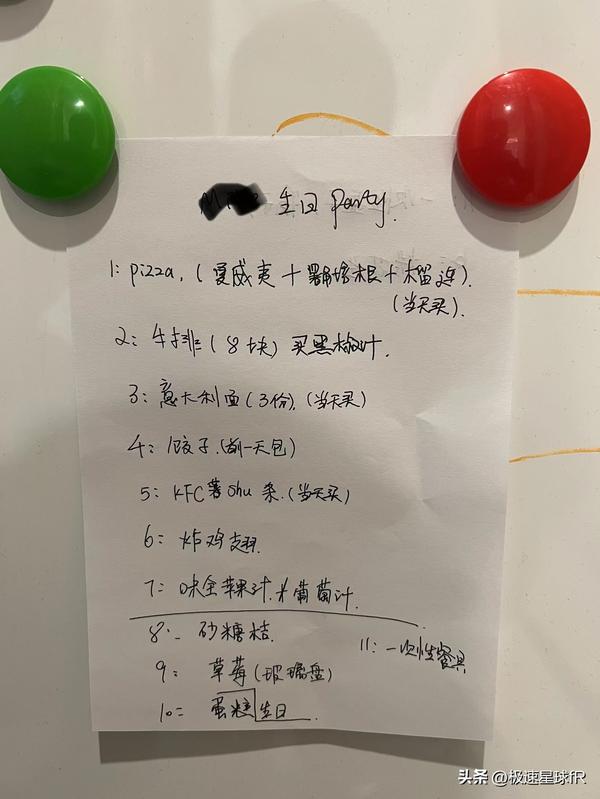 生日 party.
1: pizza, (夏威夷 + 培根 + 榴连).
(当天买).
2: 牛排 (8块) 买黑椒汁.
3: 意大利面 (3份). (当天买)
4: 饺子. (前一天包)
5: KFC 薯 shu 条. (当天买)
6: 炸鸡翅.
7: 味全苹果汁. 葡萄汁.
8: 砂糖桔.
11: 一次性餐具
9: 草莓 (玻璃盘)
10: 蛋糕 生日
头条 @极速星球fR